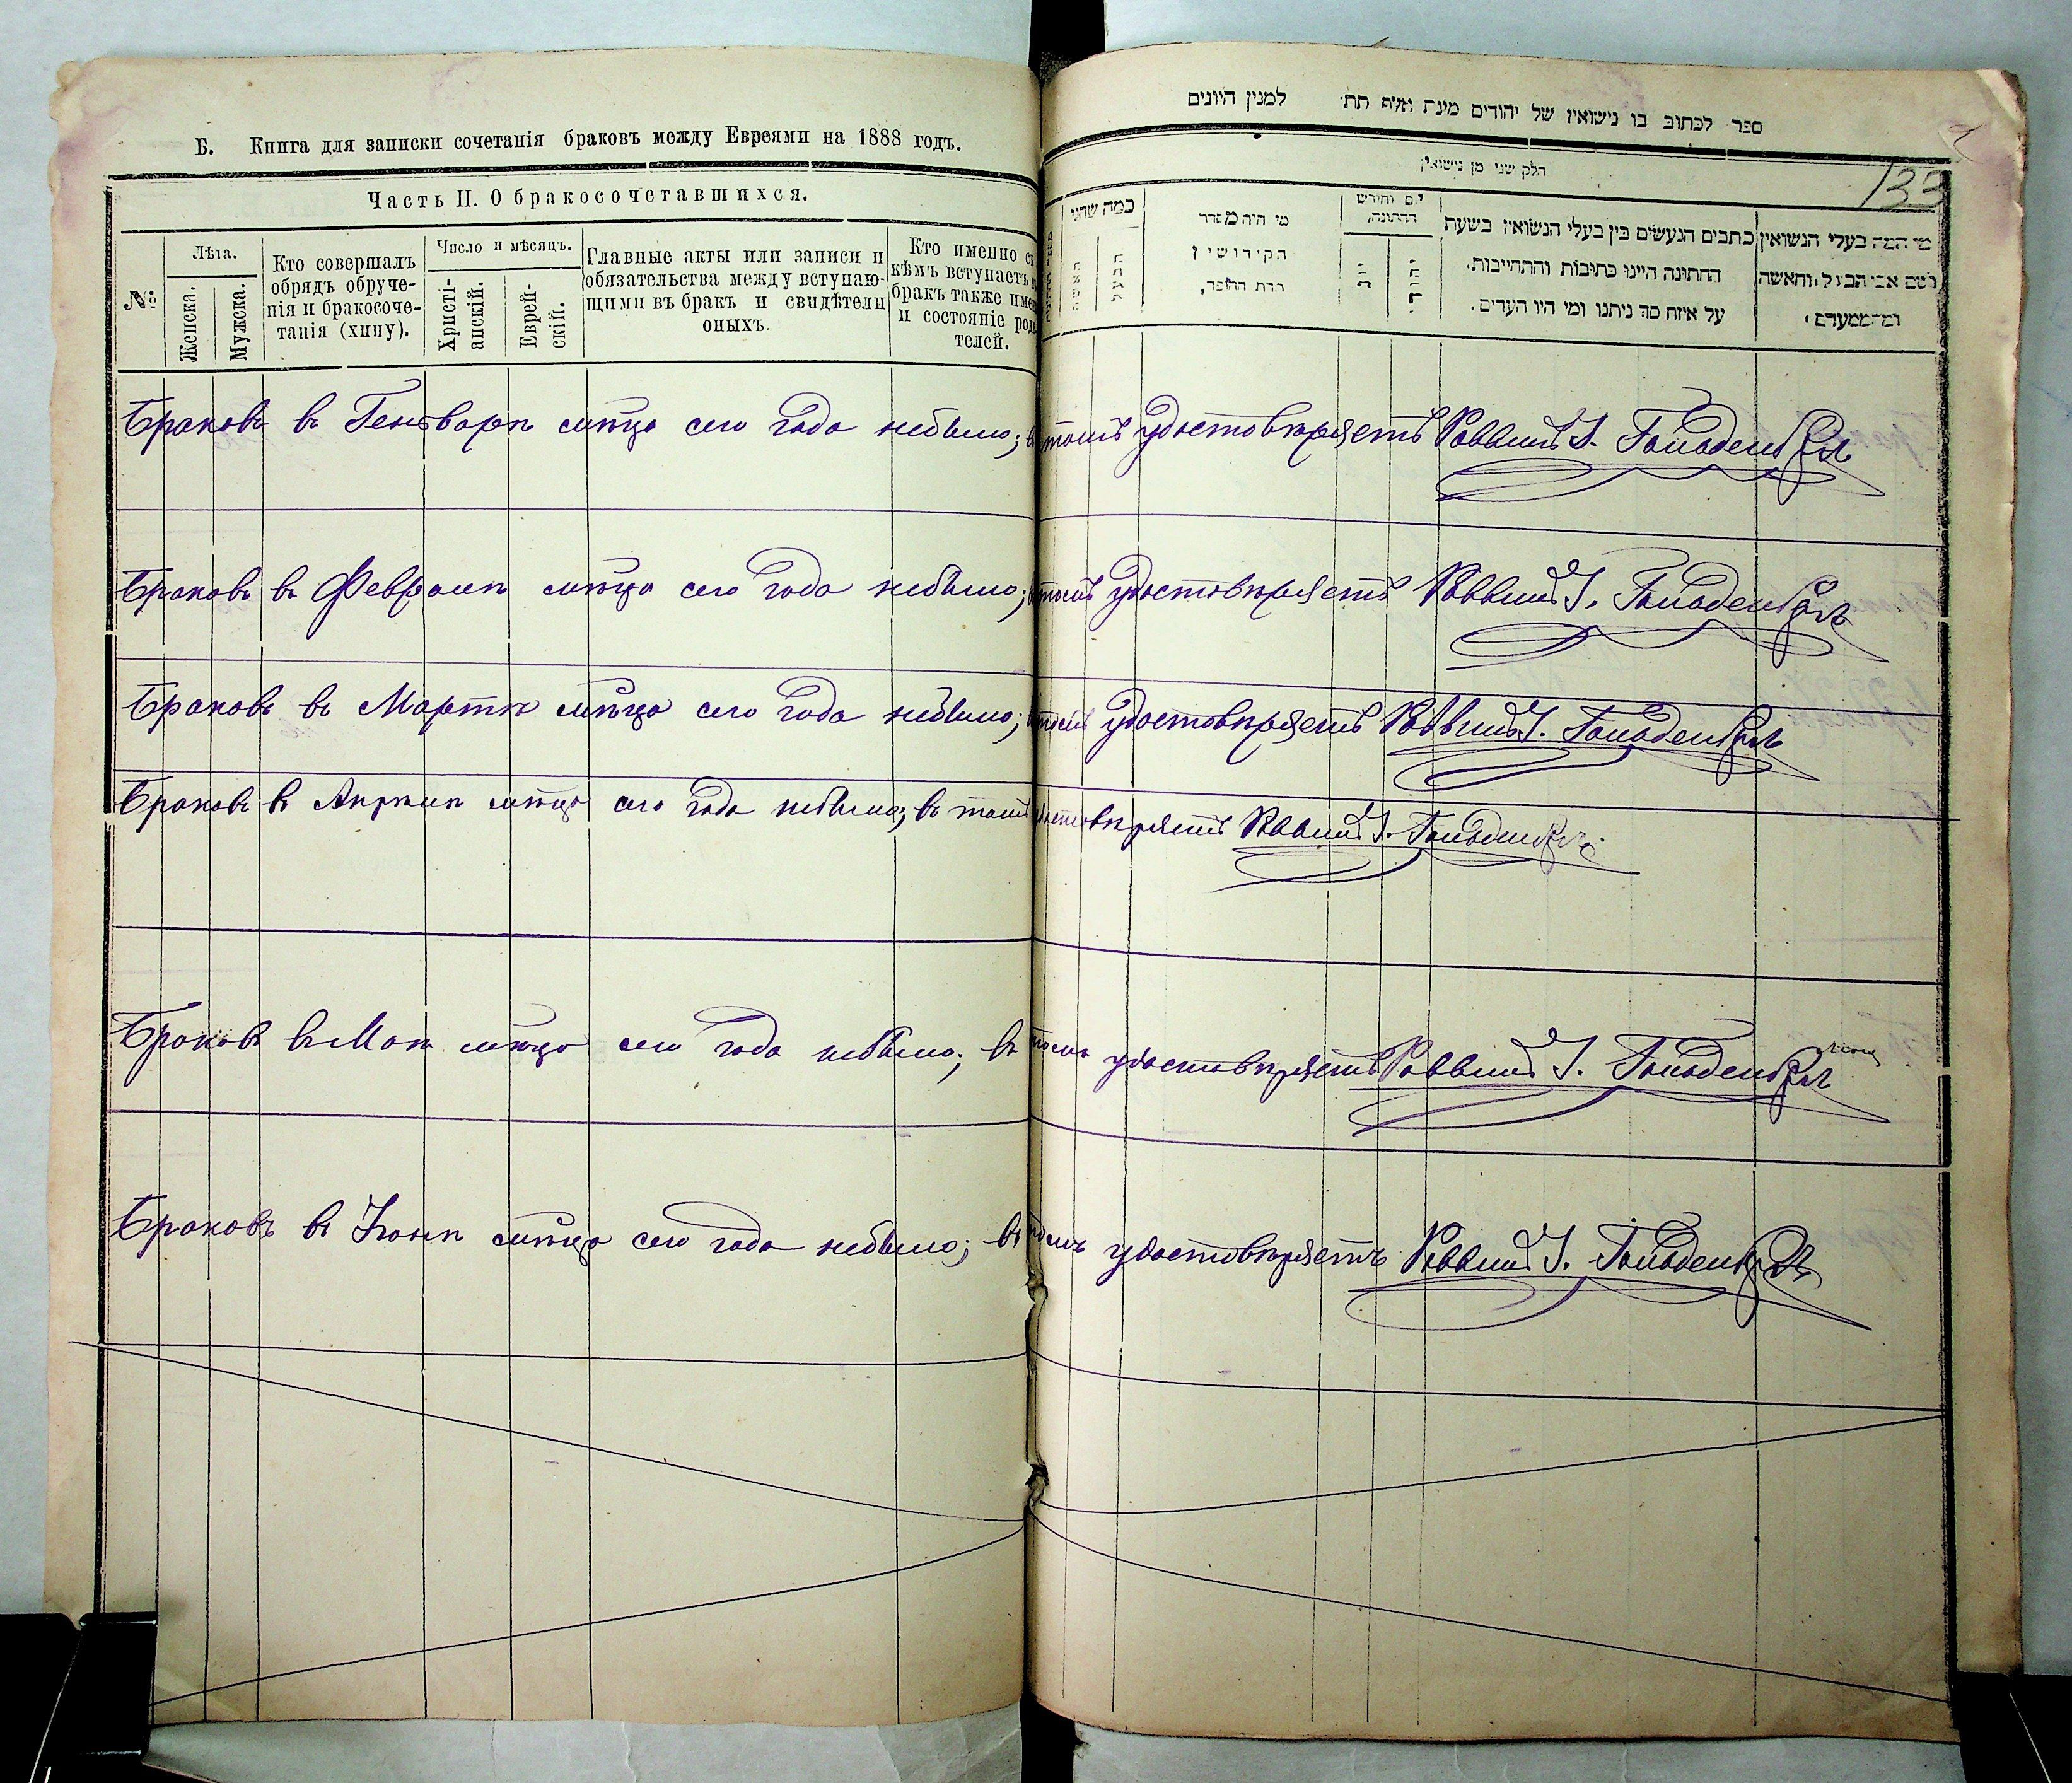 Б. Книга для записки сочетанія браковъ между Евреями на 1888 годъ.
Часть II. О бракосочетавшихся.
№
Лѣта.
Женска.
Мужска.
Кто совершалъ
обрядъ обруче-
нія и бракосоче-
танія (хипу).
Число и мѣсяцъ.
Христі-
анскій.
Еврей-
скій.
Главные акты или записи и
обязательства между вступаю-
щими въ бракъ и свидѣтели
оныхъ.
Кто именно съ
кѣмъ вступаетъ
бракъ также
и состояніе
телей.
ספר לכתוב בו נישואין של יהודים מינת אלף תת למנין היונים
חלק שני מן נישואין
כמה שהני
מי היה מסדר
הקידושין
יום וחודש
החתונה,
כתבים הנעשים בין בעלי הנשואין בשעת
החתונה היינו כתובות והתחייבות.
על איזה סך ניתנו ומי היו העדים.
מי המה בעלי הנשואין
Браковъ въ Генварѣ мѣца сего года небыло; въ томъ удостовѣряетъ Раввинъ І. Гольденбергъ
Браковъ въ Февралѣ мѣца сего года небыло; въ томъ удостовѣряетъ Раввинъ І. Гольденбергъ
Браковъ въ Мартѣ мѣца сего года небыло; въ томъ удостовѣряетъ Раввинъ І. Гольденбергъ
Браковъ въ Апрѣлѣ мѣца сего года небыло; въ томъ удостовѣряетъ Раввинъ І. Гольденбергъ
Браковъ въ Маѣ мѣца сего года небыло; въ томъ удостовѣряетъ Раввинъ І. Гольденбергъ
Браковъ въ Іюнѣ мѣца сего года небыло; въ томъ удостовѣряетъ Раввинъ І. Гольденбергъ